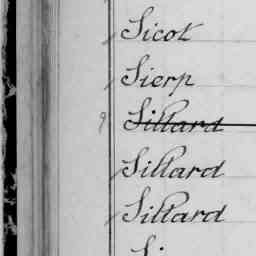 Sicot
Sierp
Sillard
Sillard
Sillard